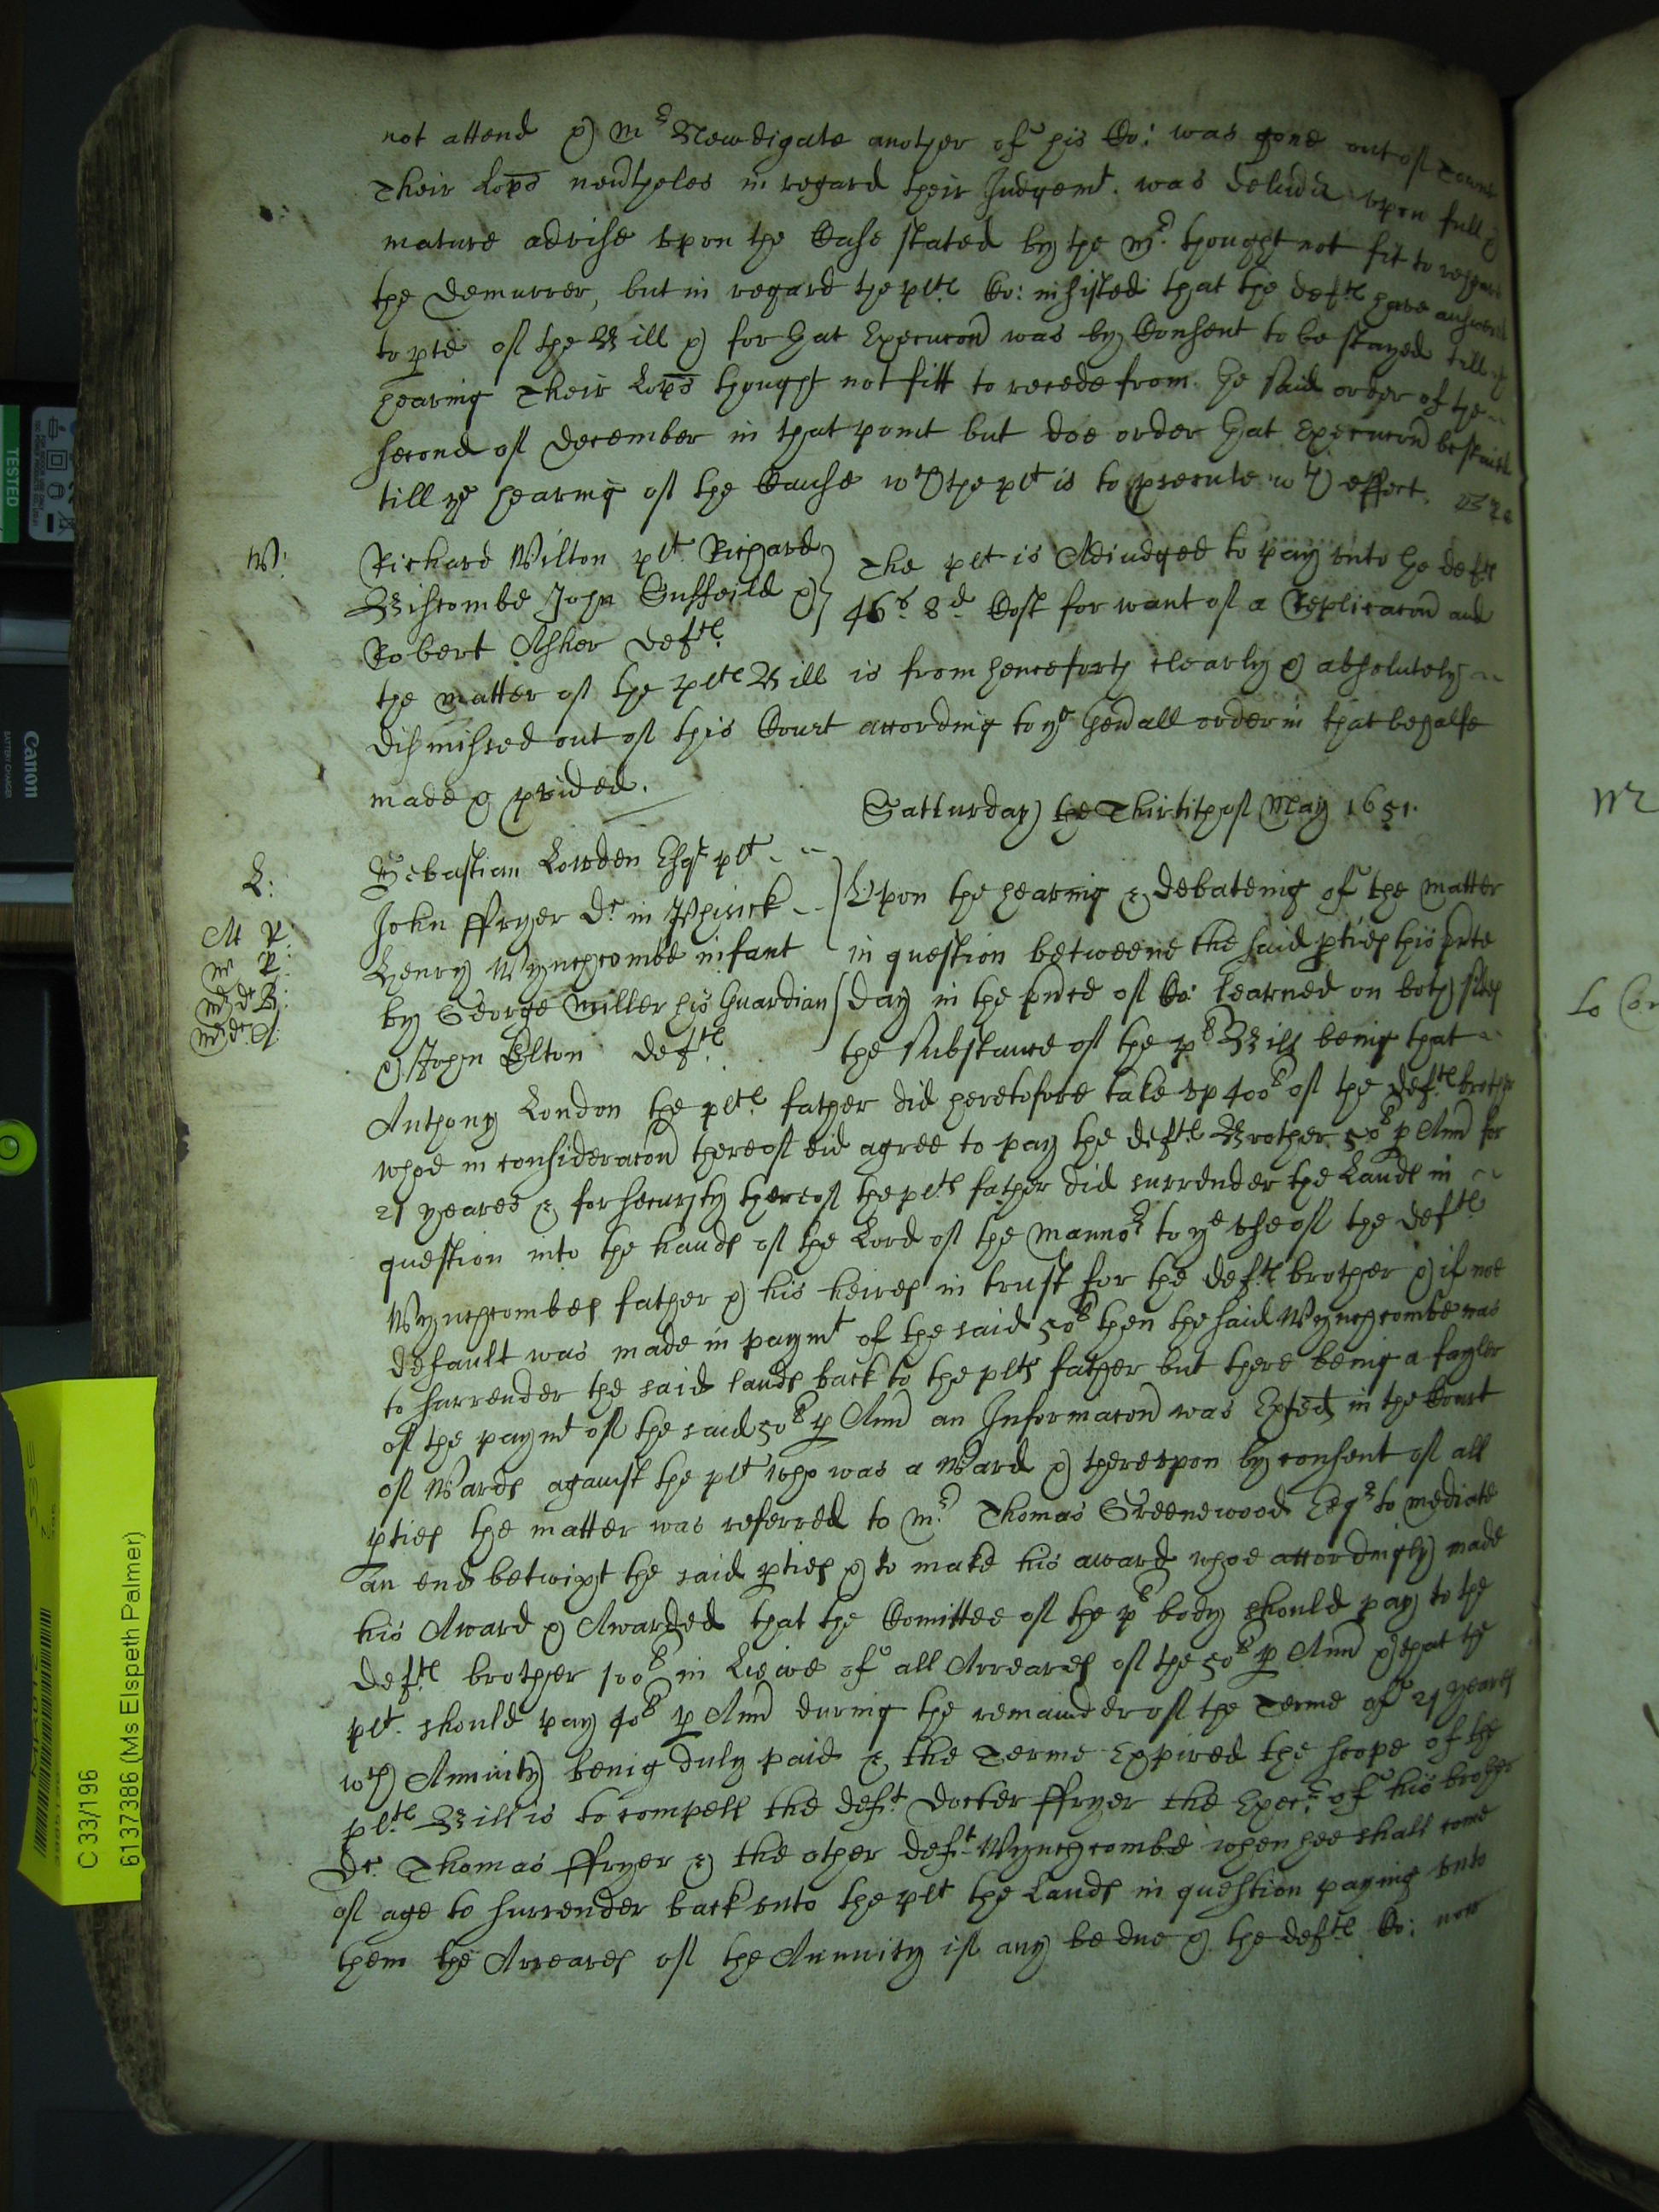 not attend & Mr Newdigate another of his Co: was gone out of Towne
Their Lopps nevtheles in regard their Judgemt. was delivd upon full &
mature advise upon the Case stated by the Mr. thought not fit to
the Demurrer, but in regard the plts Co: insisted that the defts have answered
to pte of the Bill & for that Execucon was by Consent to be stayed till ye
hearing Their Lopps thought not fitt to recede from the said order of the
second of December in that point but doe order that Execucon be staied
till ye hearing of the Cause wch the plt is to psecute wth effect.
W:
Richard Wilton plt Richard
Biscombe John Suffeild &
Robert Asker defts
The plt is Adiudged to pay unto the defts
46s. 8d Cost for want of a Replicacon and
the matter of the plts Bill is from henceforth clearly & absolutely
dismissed out of this Court according to ye Genall order in that behalfe
made & pvided.
Satturday the Thirtith of May 1651.
L:
M P:
Mr P:
Sebastian Lowden Esqr plt
John ffryer Dr in Phisick
Henry Wynchcombe infant
by George Miller his Guardian
& John Elton defts
Upon the hearing & debateing of the matter
in question betweene the said pties this pnte
day in the pnce of Co: learned on both sides
the substance of the pls Bill being that
Anthony London the plts father did heretofore take up 400l of the defts brother
whoe in consideracon thereof did agree to pay the defts Brother 50l p Ann for
21 yeares & for security thereof the plts father did surrender the Lands in
question into the hands of the Lord of the Mannor to ye use of the defts
Wynchcombes father & his heires in trust for the defts brother & if noe
default was made in paymt of the said 50l then the said Wynchcombe was
to surrender the said lands back to the plts father but there being a fayler
of the paymt of the said 50l p Ann an Informacon was Exted in the Court
of Wards against the plt who was a Ward & thereupon by consent of all
pties the matter was referred to Mr. Thomas Greenewood Esqr to mediate
an end betwixt the said pties & to make his award whoe accordingly made
his Award & Awarded that the Comittee of the pls body should pay to the
defts brother 100l in Liewe of all Arreares of the 50l p Ann & that the
plt. should pay 40l p Ann during the remainder of the Terme of 21 yeares
wch Annuity being duly paid & the Terme Expired the scope of the
plts Bill is to compell the deft. Docter ffryer the Execr. of his brother
Dr. Thomas ffryer & the other deft Wynchcombe when hee shall come
of age to surrender back unto the plt the Lands in question paying unto
them the Arreares of the Annuity if any be due & the defts Co: now
Mr
to Con
TESTED
Canon
BATTERY CHARGER
C 33/196
6137386 (Ms Elspeth Palmer)